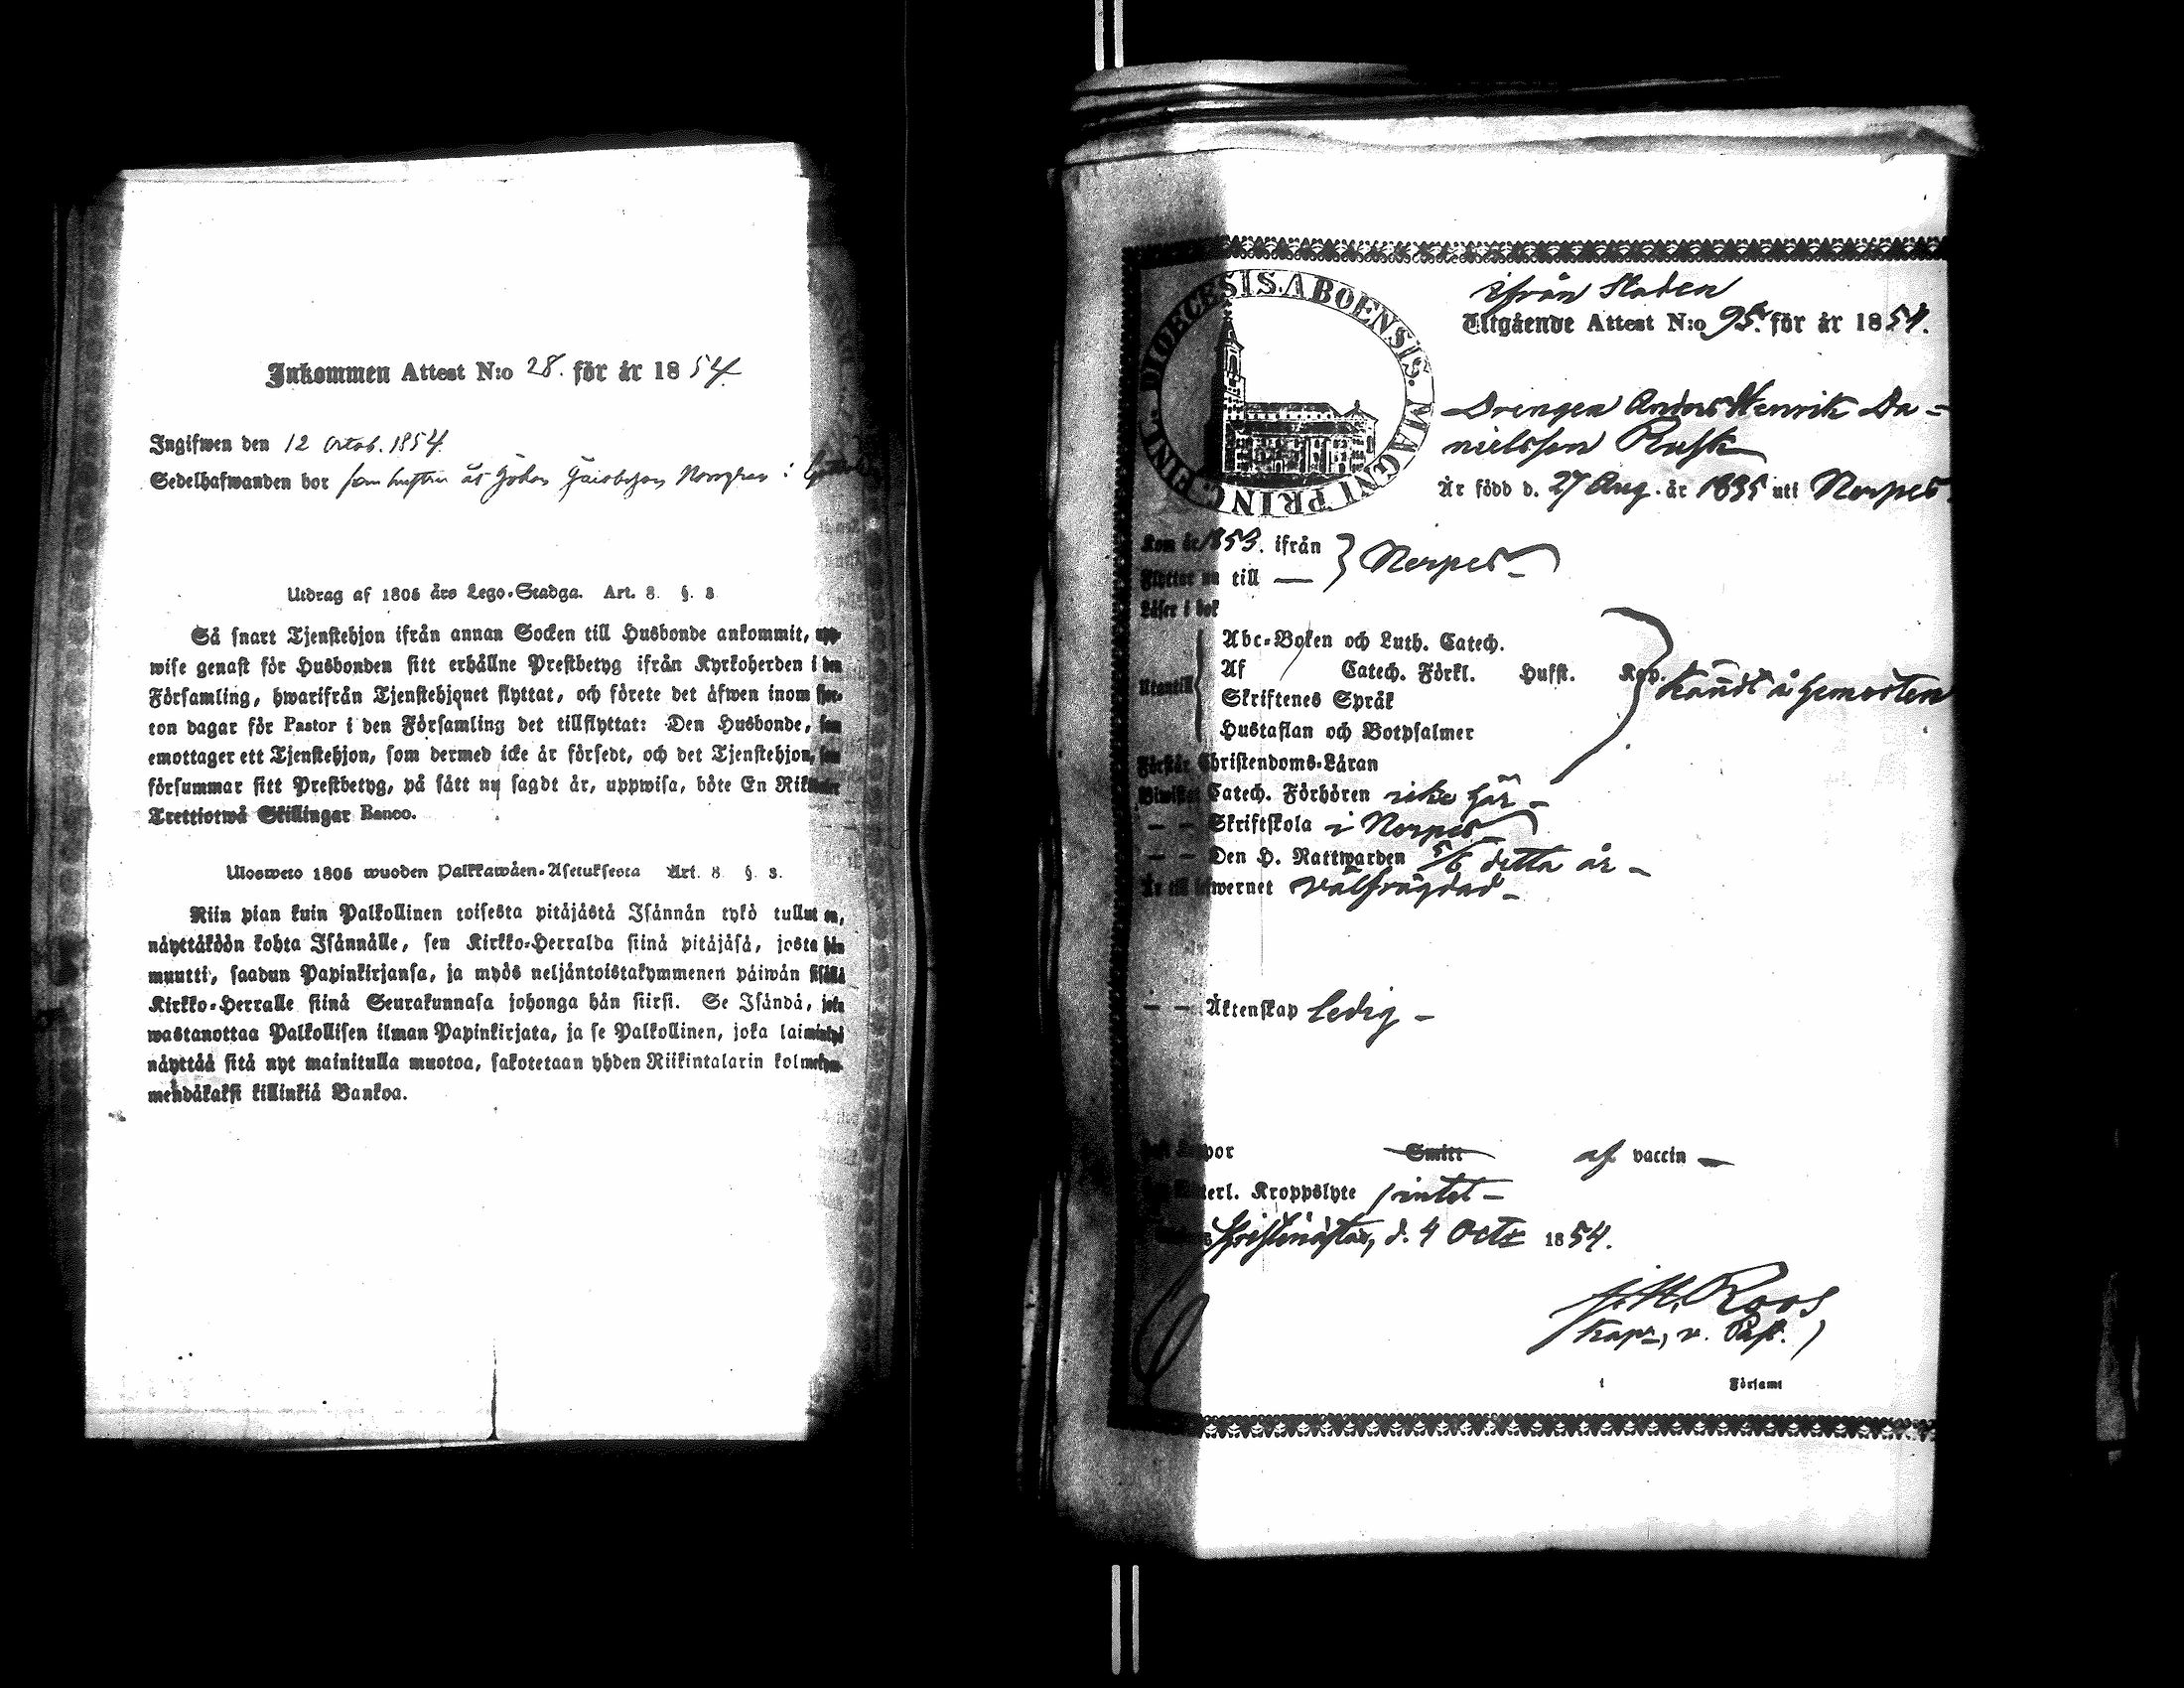 Inkommen Attest N:o 28. för år 1854.
Ingifwen den 12 Octob. 1854.
Sedelhafwanden bor
Utdrag af 1805 års Lego-Stadga. Art. 8. §. 3
Så snart Tjenstehjon ifrån annan Socken till Husbonde ankommit, upp-
wise genast för Husbonden sitt erhållne Prestbetyg ifrån Kyrkoherden i den
Församling, hwarifrån Tjenstehjonet flyttat, och förete det äfwen inom fjor-
ton dagar för Pastor i den Församling det tillflyttat: Den Husbonde, som
emottager ett Tjenstehjon, som dermed icke är försedt, och det Tjenstehjon, som
försummar sitt Prestbetyg, på sätt nu sagdt är, uppwisa, böte En Riksdaler
Trettiotwå Skillingar Banco.
Ulosweto 1805 wuoden Palkkawäen-Asetuksesta Art. 8 §. 3.
Niin pian kuin Palkollinen toisesta pitäjästä Isännän tykö tullut on,
näyttäköön kohta Isännälle, sen Kirkko-Herralda siinä pitäjäsä, josta hän
muutti, saadun Papinkirjansa, ja myös neljäntoistakymmenen päiwän sisällä
Kirkko-Herralle siinä Seurakunnasa johonga hän siirsi. Se Isändä, joka
wastanottaa Palkollisen ilman Papinkirjata, ja se Palkollinen, joka laiminlyö
näyttää sitä nyt mainitulla muotoa, sakotetaan yhden Riikintalarin kolmekym-
mendäkaksi killinkiä Bankoa.
DIOECESIS. ABOENSIS. MAGNI PRINC. FINL.
ifrån Staden
Utgående Attest N:o 95. för år 1854.
Drengen Anders Henrik Da-
nielsson Rusk
Är född d. 27 Aug. år 1835 uti Nerpes.
Kom år 1853. ifrån } Nerpes
Flyttar nu till —
Läser i bok
Abc-Boken och Luth. Catech.
Utantill Af Catech. Förkl. Husst.
Skriftenes Språk
Hustaflan och Botpsalmer
Förstår Christendoms-Läran
Biwistat Catech. Förhören icke här –
— — Skriftskola i Nerpes
— — Den H. Nattwarden 5/6 detta år –
Är till lefwernet välfrägdad –
— — Äktenskap ledig –
Smitt af vaccin –
Kroppslyte intet –
Christinestad, d. 4 Octr 1854.
Roos
Kapn, v. Past.
i Församl